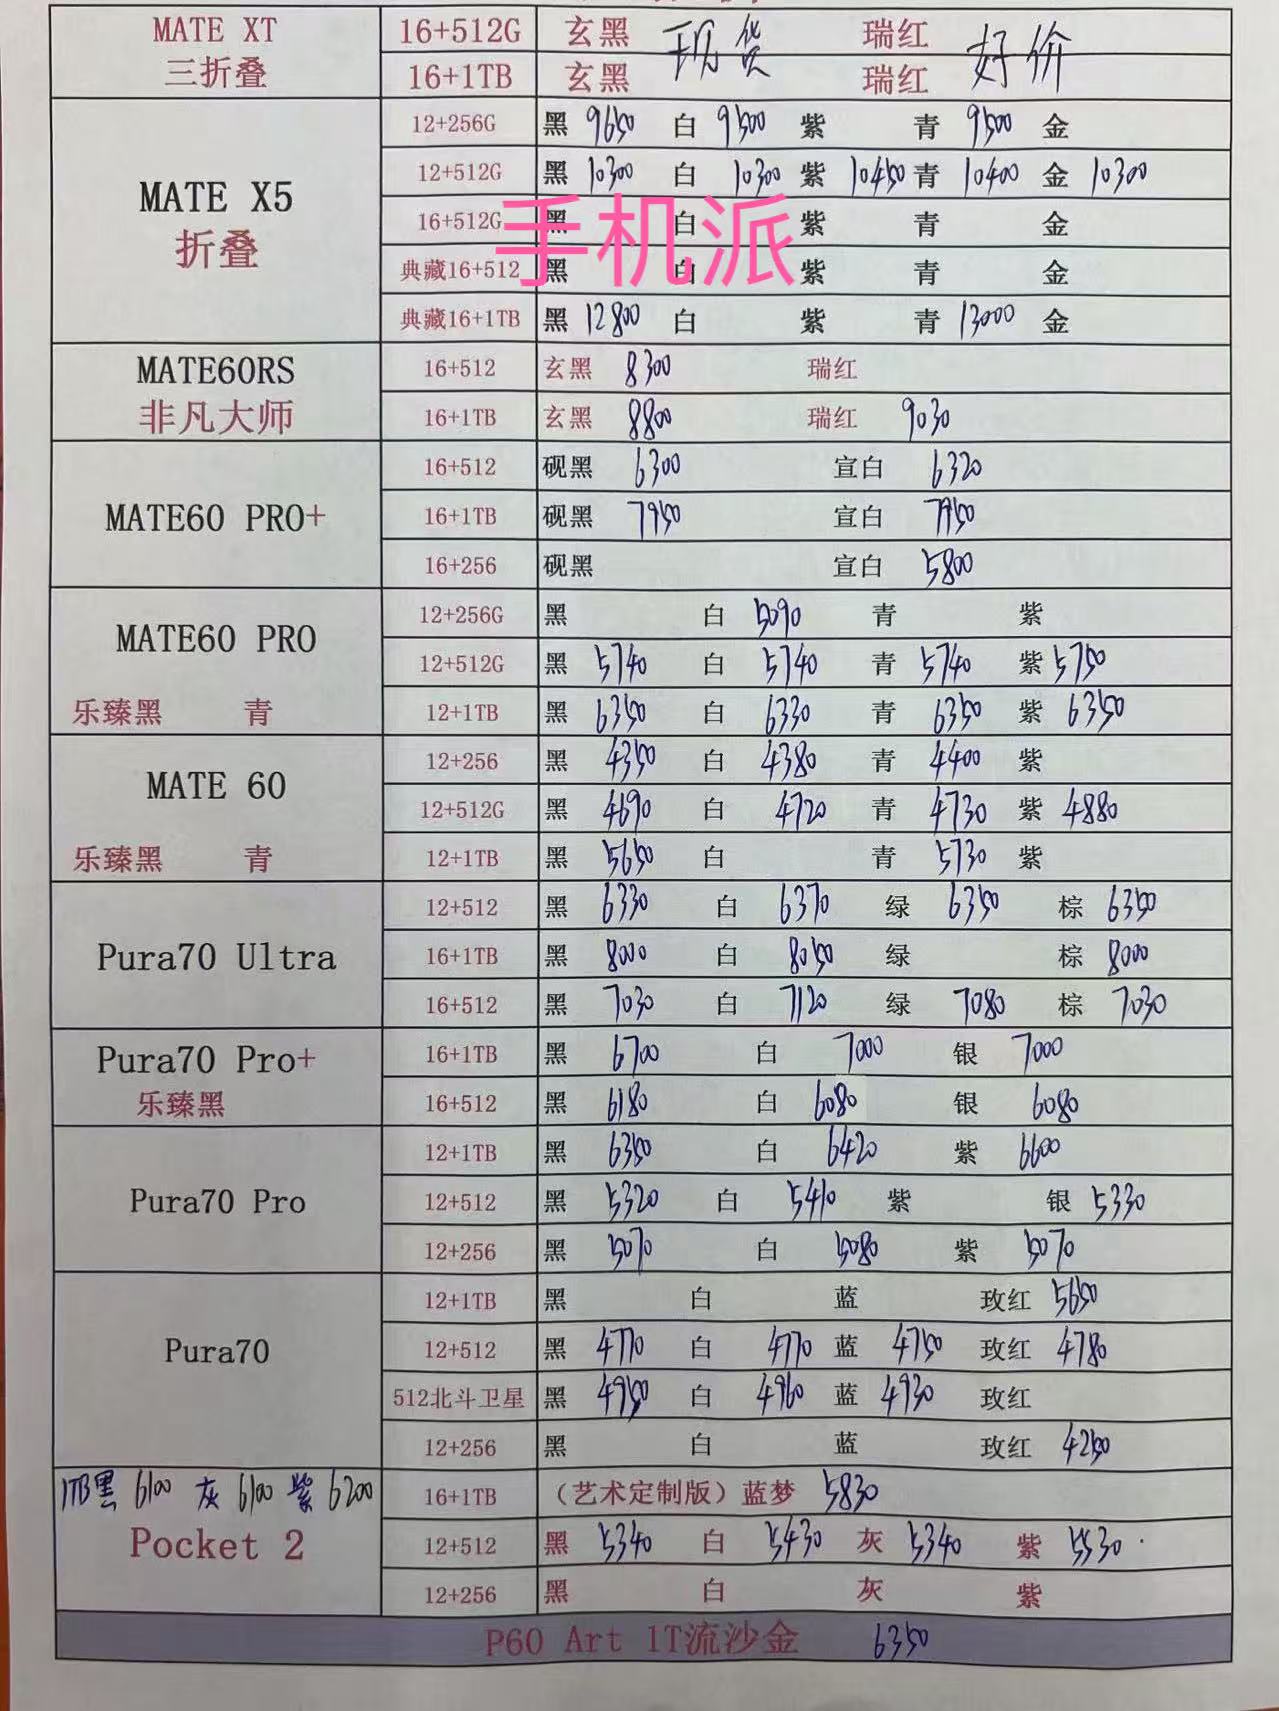 MATE XT 16+512G 玄黑 现货 瑞红 好价
三折叠 16+1TB 玄黑 瑞红
12+256G 黑 9650 白 9500 紫 青 9500 金
MATE X5 12+512G 黑 10300 白 10300 紫 10450 青 10400 金 10300
折叠 16+512G 黑 白 紫 青 金
手机派
典藏16+512 黑 白 紫 青 金
典藏16+1TB 黑 12800 白 紫 青 13000 金
MATE60RS 16+512 玄黑 8300 瑞红
非凡大师 16+1TB 玄黑 8800 瑞红 9030
16+512 砚黑 6300 宣白 6320
MATE60 PRO+ 16+1TB 砚黑 7950 宣白 7950
16+256 砚黑 宣白 5800
12+256G 黑 白 5090 青 紫
MATE60 PRO 12+512G 黑 5740 白 5740 青 5740 紫 5750
乐臻黑 青 12+1TB 黑 6350 白 6330 青 6350 紫 6350
12+256 黑 4350 白 4380 青 4400 紫
MATE 60 12+512G 黑 4690 白 4720 青 4730 紫 4880
乐臻黑 青 12+1TB 黑 5650 白 青 5730 紫
12+512 黑 6330 白 6370 绿 6350 棕 6350
Pura70 Ultra 16+1TB 黑 8000 白 8050 绿 棕 8000
16+512 黑 7030 白 7120 绿 7080 棕 7030
Pura70 Pro+ 16+1TB 黑 6700 白 7000 银 7000
乐臻黑 16+512 黑 6180 白 6080 银 6080
12+1TB 黑 6350 白 6420 紫 6600
Pura70 Pro 12+512 黑 5320 白 5410 紫 银 5330
12+256 黑 5070 白 5080 紫 5070
12+1TB 黑 白 蓝 玫红 5650
Pura70 12+512 黑 4770 白 4770 蓝 4750 玫红 4780
512北斗卫星 黑 4950 白 4960 蓝 4930 玫红
12+256 黑 白 蓝 玫红 4250
1TB黑 6100 灰 6100 紫 6200 16+1TB （艺术定制版）蓝梦 5830
Pocket 2 12+512 黑 5340 白 5430 灰 5340 紫 5530
12+256 黑 白 灰 紫
P60 Art 1T流沙金 6350